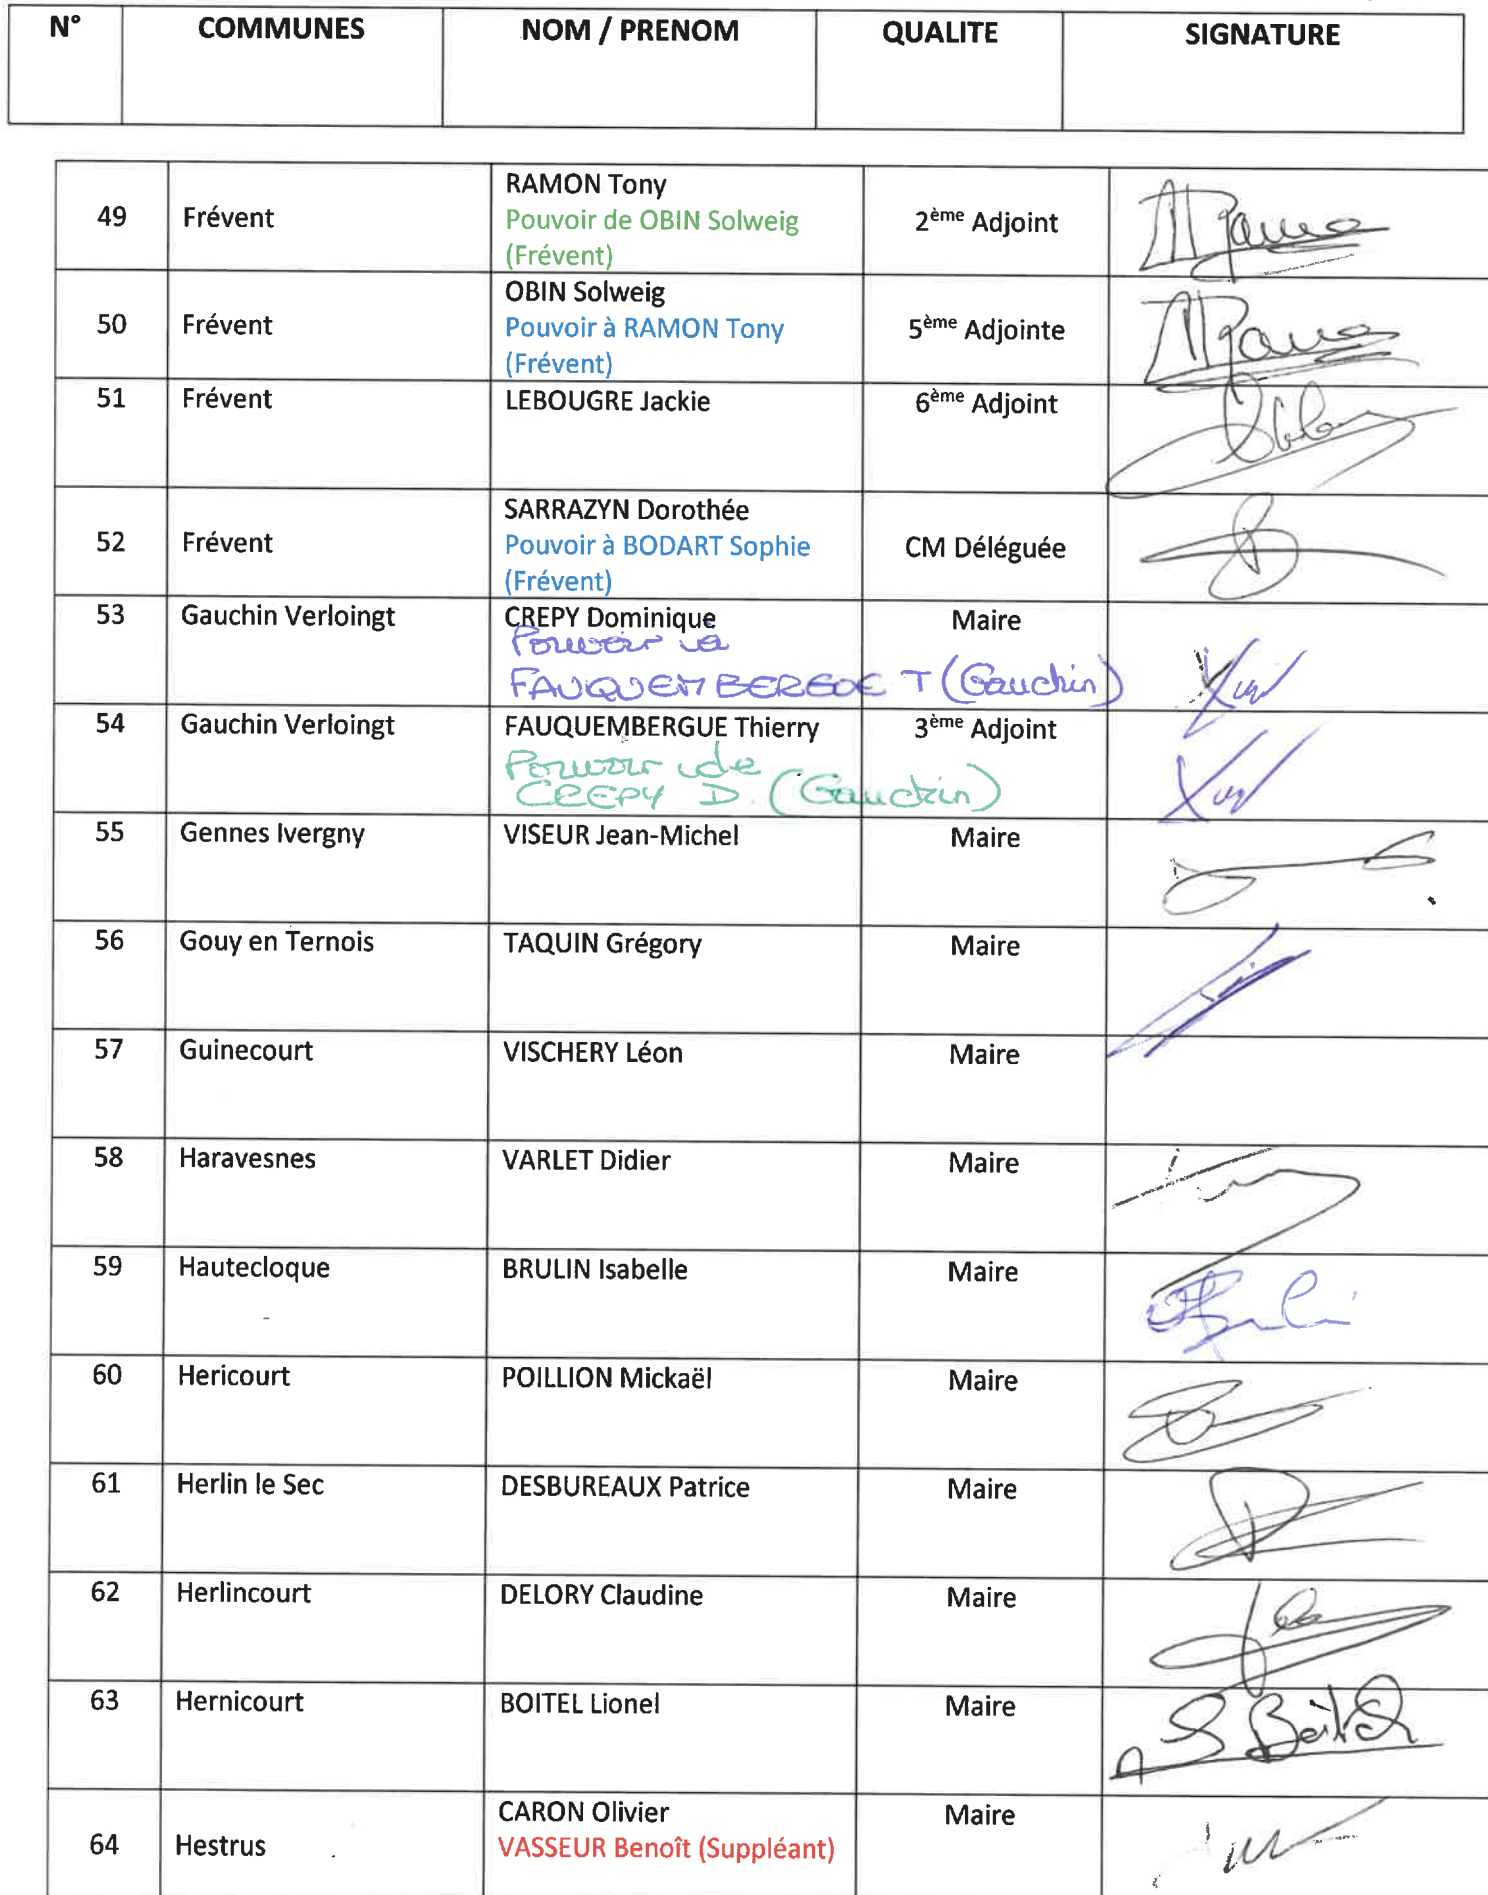 N° COMMUNES NOM / PRENOM QUALITE SIGNATURE
RAMON Tony
49 Frévent Pouvoir de OBIN Solweig 2ème Adjoint
(Frévent)
OBIN Solweig
50 Frévent Pouvoir à RAMON Tony 5ème Adjointe
(Frévent)
51 Frévent LEBOUGRE Jackie 6ème Adjoint
SARRAZYN Dorothée
52 Frévent Pouvoir à BODART Sophie CM Déléguée
(Frévent)
53 Gauchin Verloingt CREPY Dominique Maire
Pouvoir à
FAUQUEMBERGUE T (Gauchin)
54 Gauchin Verloingt FAUQUEMBERGUE Thierry 3ème Adjoint
Pouvoir de
CREPY D. (Gauchin)
55 Gennes Ivergny VISEUR Jean-Michel Maire
56 Gouy en Ternois TAQUIN Grégory Maire
57 Guinecourt VISCHERY Léon Maire
58 Haravesnes VARLET Didier Maire
59 Hautecloque BRULIN Isabelle Maire
60 Hericourt POILLION Mickaël Maire
61 Herlin le Sec DESBUREAUX Patrice Maire
62 Herlincourt DELORY Claudine Maire
63 Hernicourt BOITEL Lionel Maire
CARON Olivier Maire
64 Hestrus VASSEUR Benoît (Suppléant)